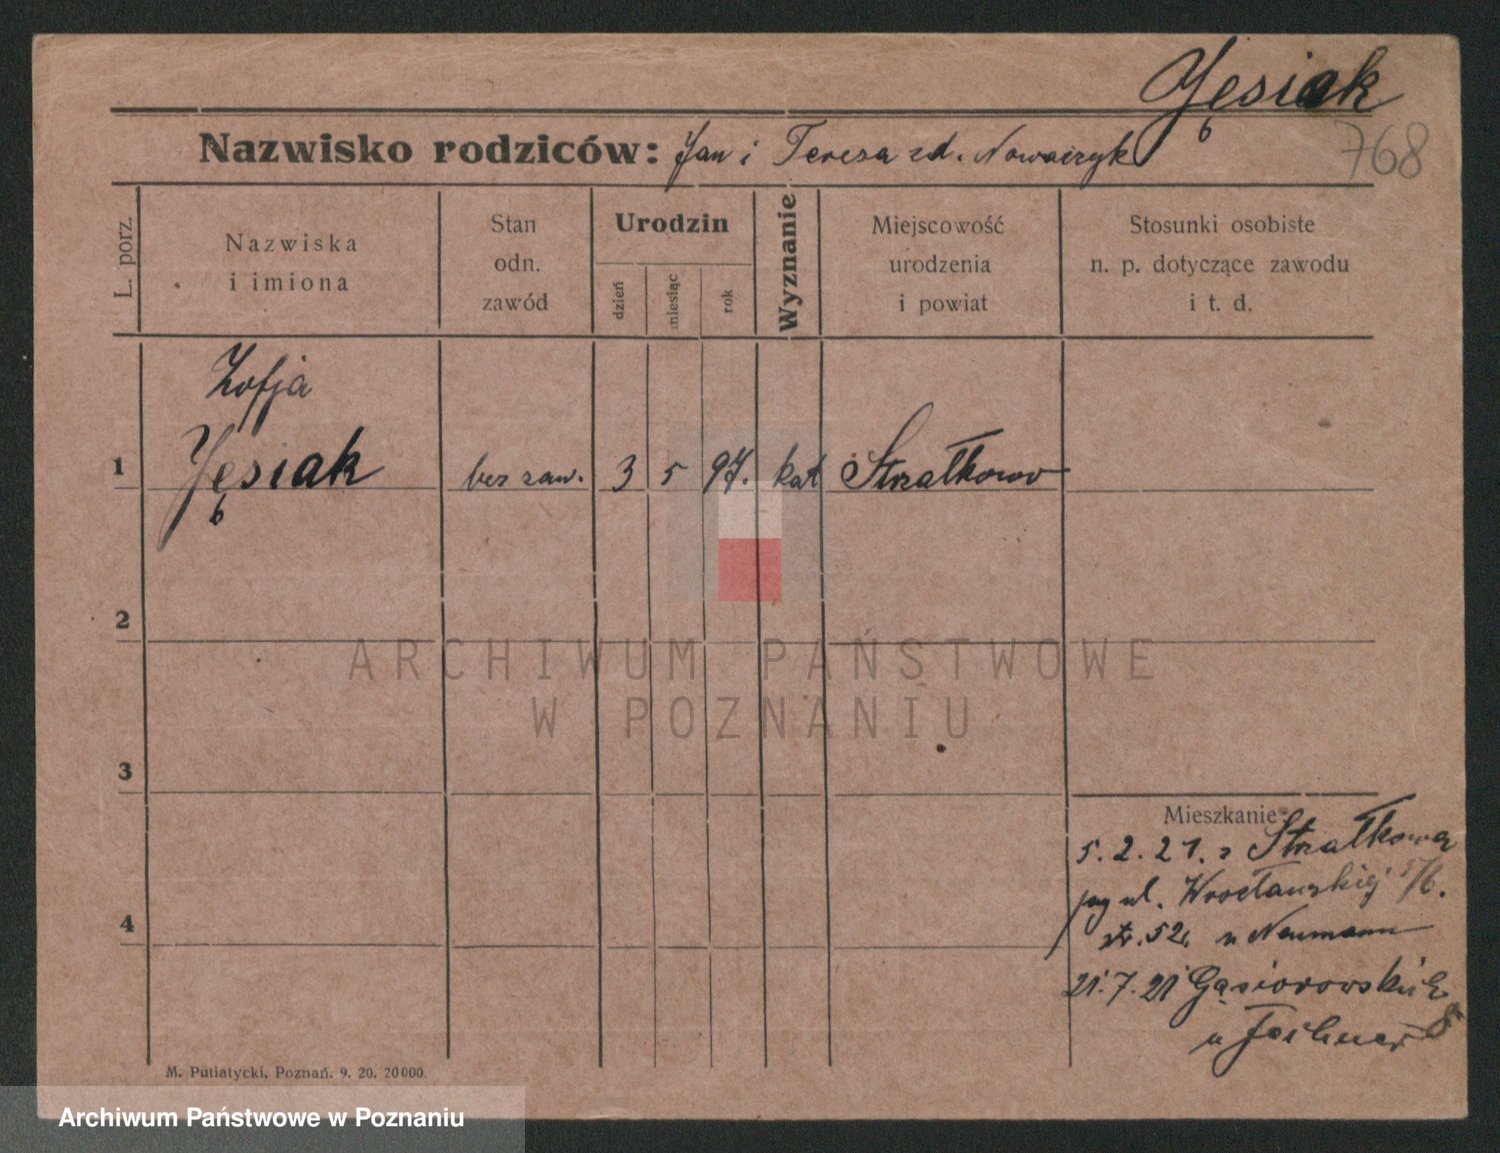 Jęsiak
768
Nazwisko rodziców: Jan i Teresa zd. Nowaczyk
L. porz.
Nazwiska
i imiona
Stan
odn.
zawód
Urodzin
dzień
miesiąc
rok
Wyznanie
Miejscowość
urodzenia
i powiat
Stosunki osobiste
n. p. dotyczące zawodu
i t. d.
Zofja
1 Jęsiak bez zaw. 3 5 97. kat Strzałkowo
2
ARCHIWUM PAŃSTWOWE
W POZNANIU
3
Mieszkanie:
5. 2. 21. z Strzałkowa
ul. Wrocławskiej
str. 52. u Neumann
21. 7. 21 Gąsiorowskich
8
u
4
M. Putiatycki, Poznań. 9. 20. 20000.
Archiwum Państwowe w Poznaniu